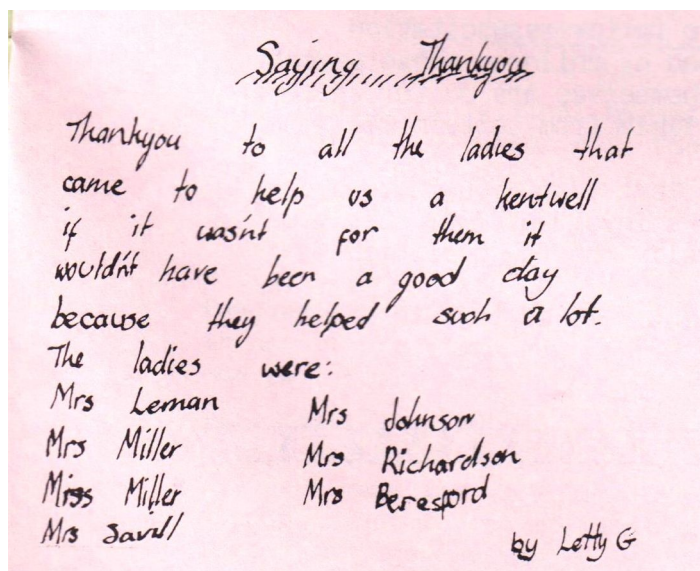 Saying Thankyou
Thankyou to all the ladies that
came to help us a kentwell
if it wasn't for them it
would'nt have been a good day
because they helped such a lot.
The ladies were:
Mrs Leman
Mrs Johnson
Mrs Miller
Mrs Richardson
Miss Miller
Mrs Beresford
Mrs Savill
by Letty G